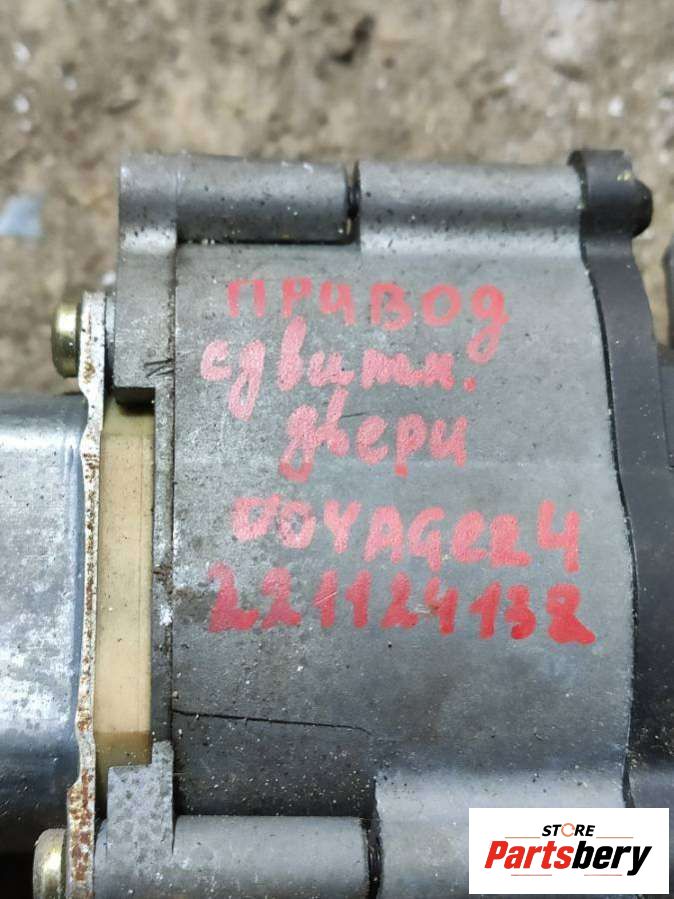 ПРИВОД
сдвижн.
двери
VOYAGER 4
221124132
STORE
Partsbery